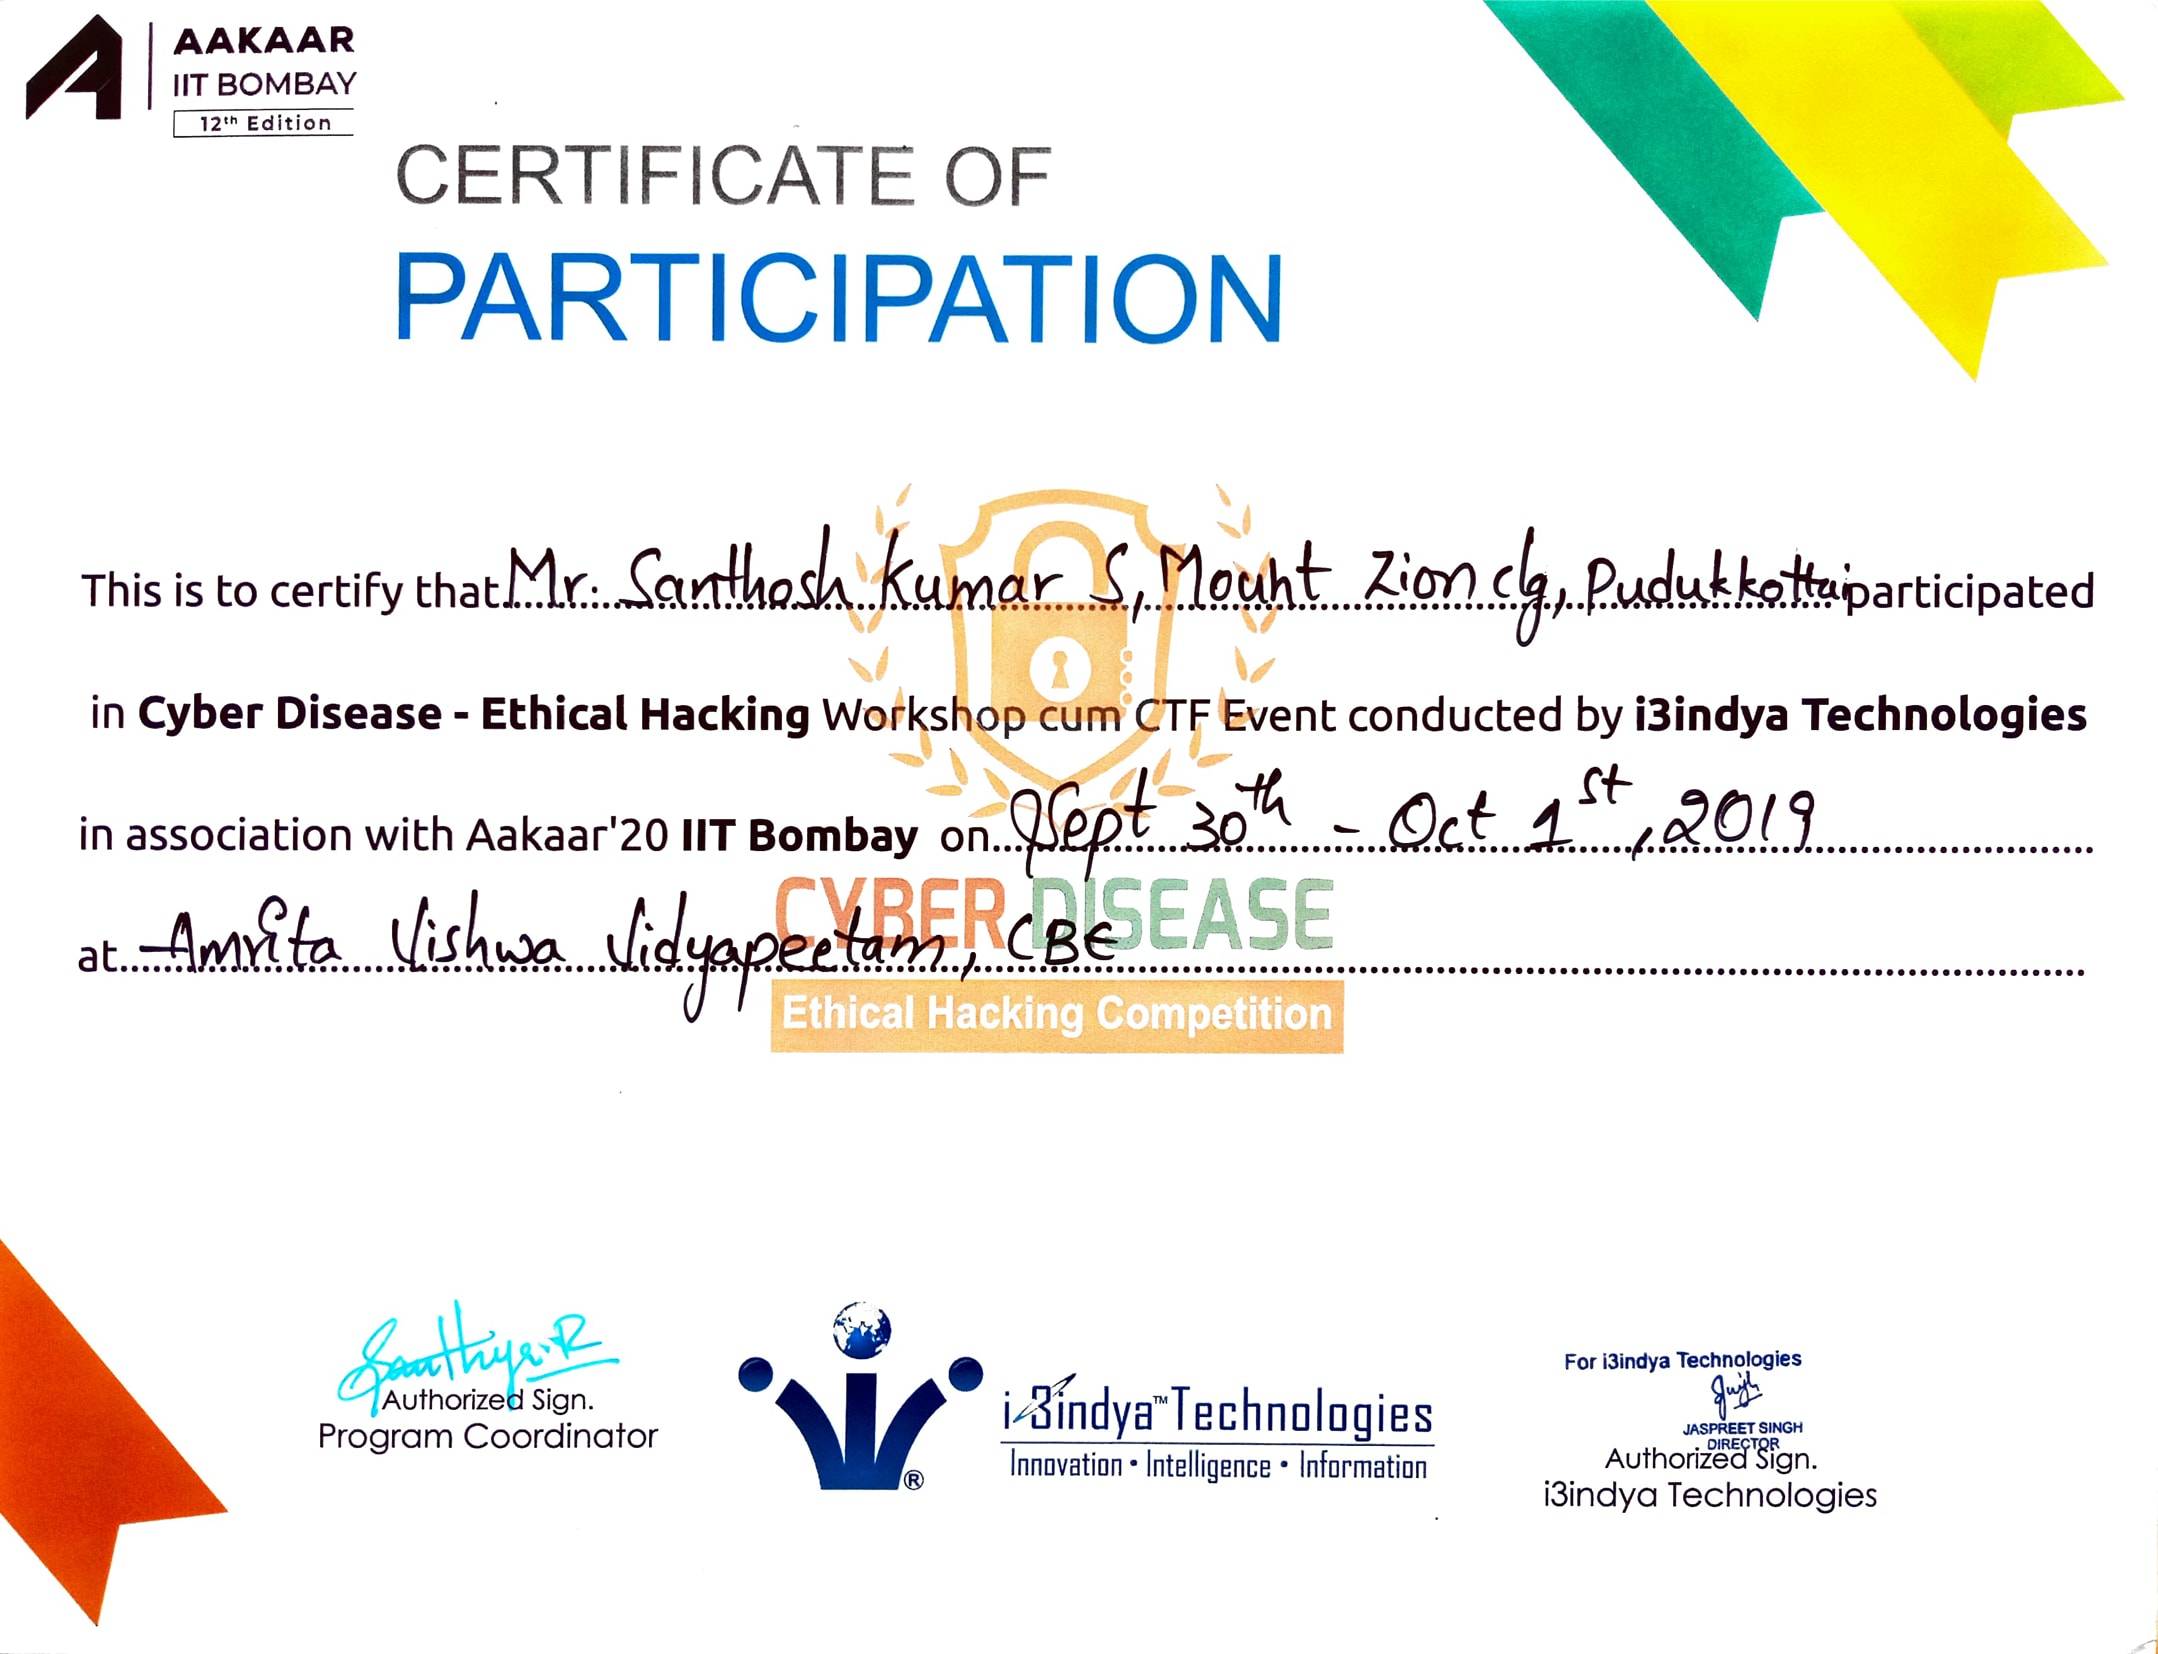 AAKAAR
IIT BOMBAY
12th Edition
CERTIFICATE OF
PARTICIPATION
This is to certify that Mr. Santhosh Kumar S, Mount Zion clg, Pudukkottai participated
in Cyber Disease - Ethical Hacking Workshop cum CTF Event conducted by i3indya Technologies
in association with Aakaar'20 IIT Bombay on Sept 30th - Oct 1st, 2019
CYBER DISEASE
at Amrita Vishwa Vidyapeetam, CBE
Ethical Hacking Competition
Santhiya.R
Authorized Sign.
Program Coordinator
i3indya™ Technologies
Innovation • Intelligence • Information
®
For i3indya Technologies
JASPREET SINGH
DIRECTOR
Authorized Sign.
i3indya Technologies